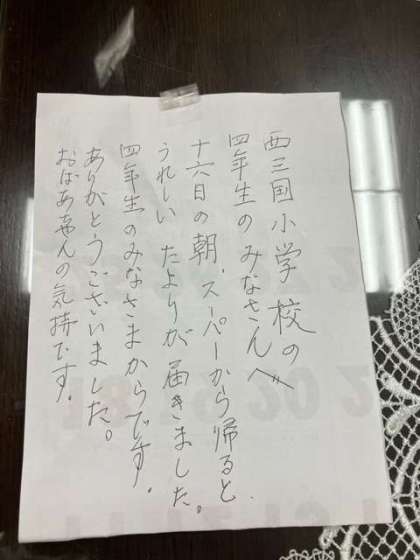 西三国小学校の
四年生のみなさんへ
十六日の朝、スーパーから帰ると
うれしいたよりが届きました。
四年生のみなさまからです。
ありがとうございました。
おばあちゃんの気持です。